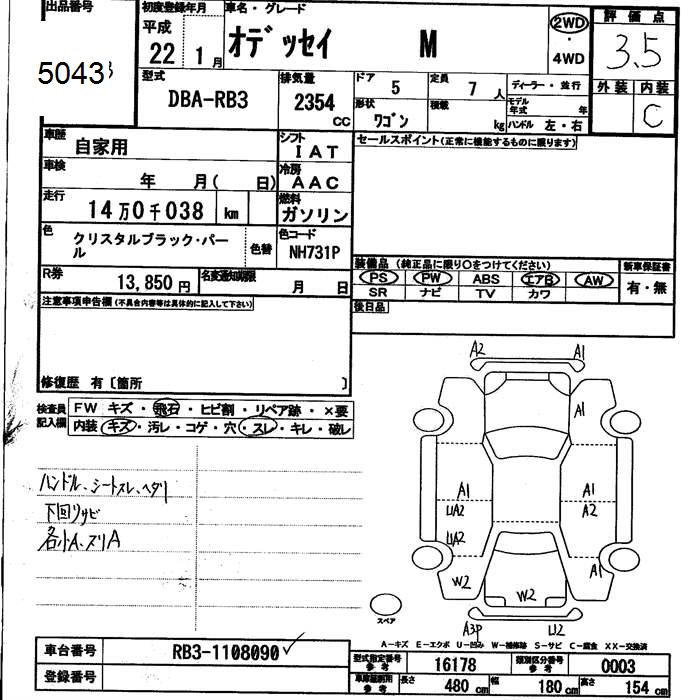 出品番号 初度登録年月 車名・グレード 評価点
平成 22 1月 オデッセイ M 2WD・4WD 3.5
5043
型式 DBA-RB3 排気量 2354 CC ドア 5 定員 7人 ディーラー・並行 外装 内装
形状 ワゴン 積載 kg モデル年式 年 ハンドル 左・右 C
車歴 自家用 シフト IAT セールスポイント(正常に機能するものに限ります)
車検 年 月( 日) 冷房 AAC
走行 14万0千038 km 燃料 ガソリン
色 クリスタルブラック・パール 色替 色コード NH731P
装備品(純正品に限り〇をつけてください) 新車保証書
R券 13,850円 名変通知期限 月 日 PS PW ABS エアB AW 有・無
SR ナビ TV カワ
注意事項申告欄(不具合内容等は具体的に記入して下さい) 後日品
修復歴 有〔箇所 〕
検査員記入欄 FW キズ・飛石・ヒビ割・リペア跡・×要
内装 キズ・汚レ・コゲ・穴・スレ・キレ・破レ
ハンドル、シートスレ、ヘタリ
下回りサビ
各小A、スリA
A2 A1
A1
A1 A1
UA2 A2
UA2
A1
W2 W2
スペア A3P U2
A-キズ E-エクボ U-凹み W-補修跡 S-サビ C-腐食 XX-交換済
車台番号 RB3-1108090
型式指定番号 参考 16178 類別区分番号 参考 0003
登録番号
車庫証明用 参考 長さ 480cm 幅 180cm 高さ 154cm